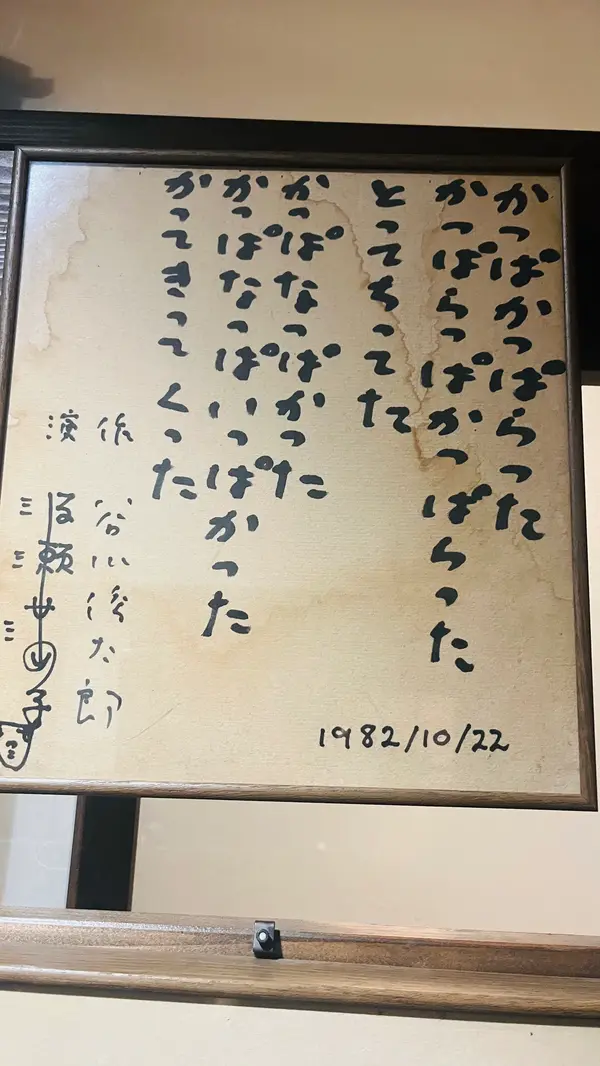 かっぱかっぱらった
かっぱらっぱかっぱらった
とってちってた
かっぱなっぱかった
かっぱなっぱいっぱかった
かってきってくった
作 谷川俊太郎
演
1982/10/22